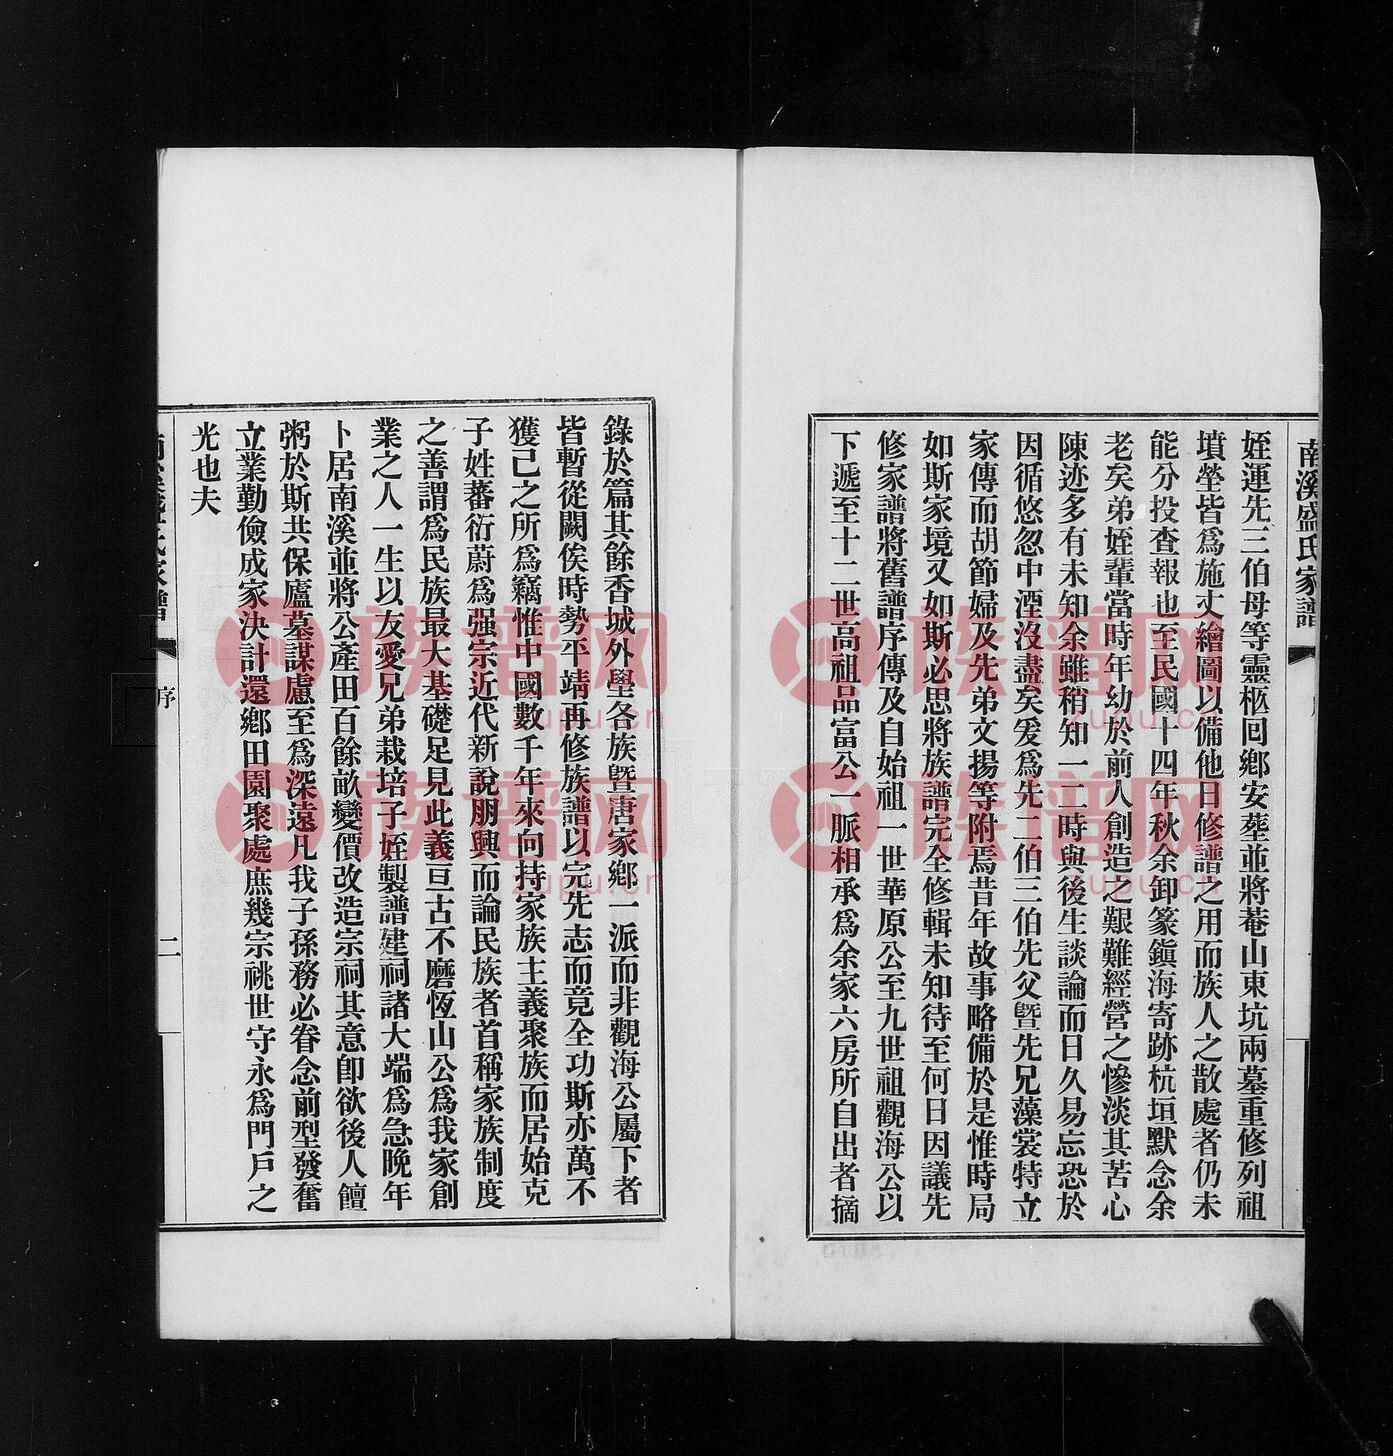 南溪盛氏家譜
姪運先三伯母等靈柩回鄉安葬並將菴山東坑兩墓重修列祖
墳塋皆爲施丈繪圖以備他日修譜之用而族人之散處者仍未
能分投查報也至民國十四年秋余卸篆鎭海寄跡杭垣默念余
老矣弟姪輩當時年幼於前人創造之艱難經營之慘淡其苦心
陳迹多有未知余雖稍知一二時與後生談論而日久易忘恐於
因循悠忽中湮沒盡矣爰爲先二伯三伯先父曁先兄藻裳特立
家傳而胡節婦及先弟文揚等附焉昔年故事略備於是惟時局
如斯家境又如斯必思將族譜完全修輯未知待至何日因議先
修家譜將舊譜序傳及自始祖一世華原公至九世祖觀海公以
下遞至十二世高祖品富公一脈相承爲余家六房所自出者摘
錄於篇其餘香城外壆各族曁唐家鄉一派而非觀海公屬下者
皆暫從闕俟時勢平靖再修族譜以完先志而竟全功斯亦萬不
獲已之所爲竊惟中國數千年來向持家族主義聚族而居始克
子姓蕃衍蔚爲强宗近代新說朋興而論民族者首稱家族制度
之善謂爲民族最大基礎足見此義亘古不磨恆山公爲我家創
業之人一生以友愛兄弟栽培子姪製譜建祠諸大端爲急晚年
卜居南溪並將公產田百餘畝變價改造宗祠其意卽欲後人饘
粥於斯共保廬墓謀慮至爲深遠凡我子孫務必眷念前型發奮
立業勤儉成家決計還鄉田園聚處庶幾宗祧世守永爲門戶之
光也夫
序
二
族谱网
zupu.cn
族谱网
zupu.cn
族谱网
zupu.cn
族谱网
zupu.cn